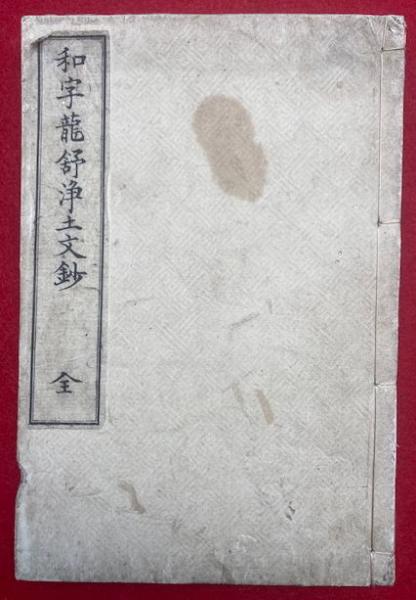 和字龍舒浄土文鈔 全